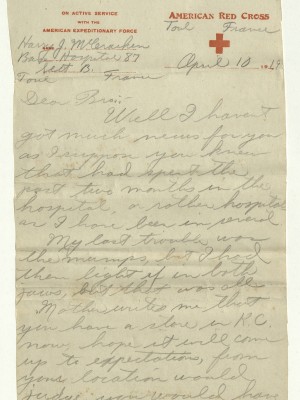 ON ACTIVE SERVICE
WITH THE
AMERICAN EXPEDITIONARY FORCE
AMERICAN RED CROSS
Toul France
Harry J. McCracken
Base Hospital 87
Sect B.
Toul France
April 10 1919
Dear Bro:-
Well I haven't
got much news for you
as I suppose you knew
that had spent the
past two months in the
hospital, or rather hospitals
as I have been in several
My last trouble was
the mumps, but I had
them light if in both
jaws, but that was all
Mother writes me that
you have a store in K.C.
now, hope it will come
up to expectations, from
your location would
judge you would have